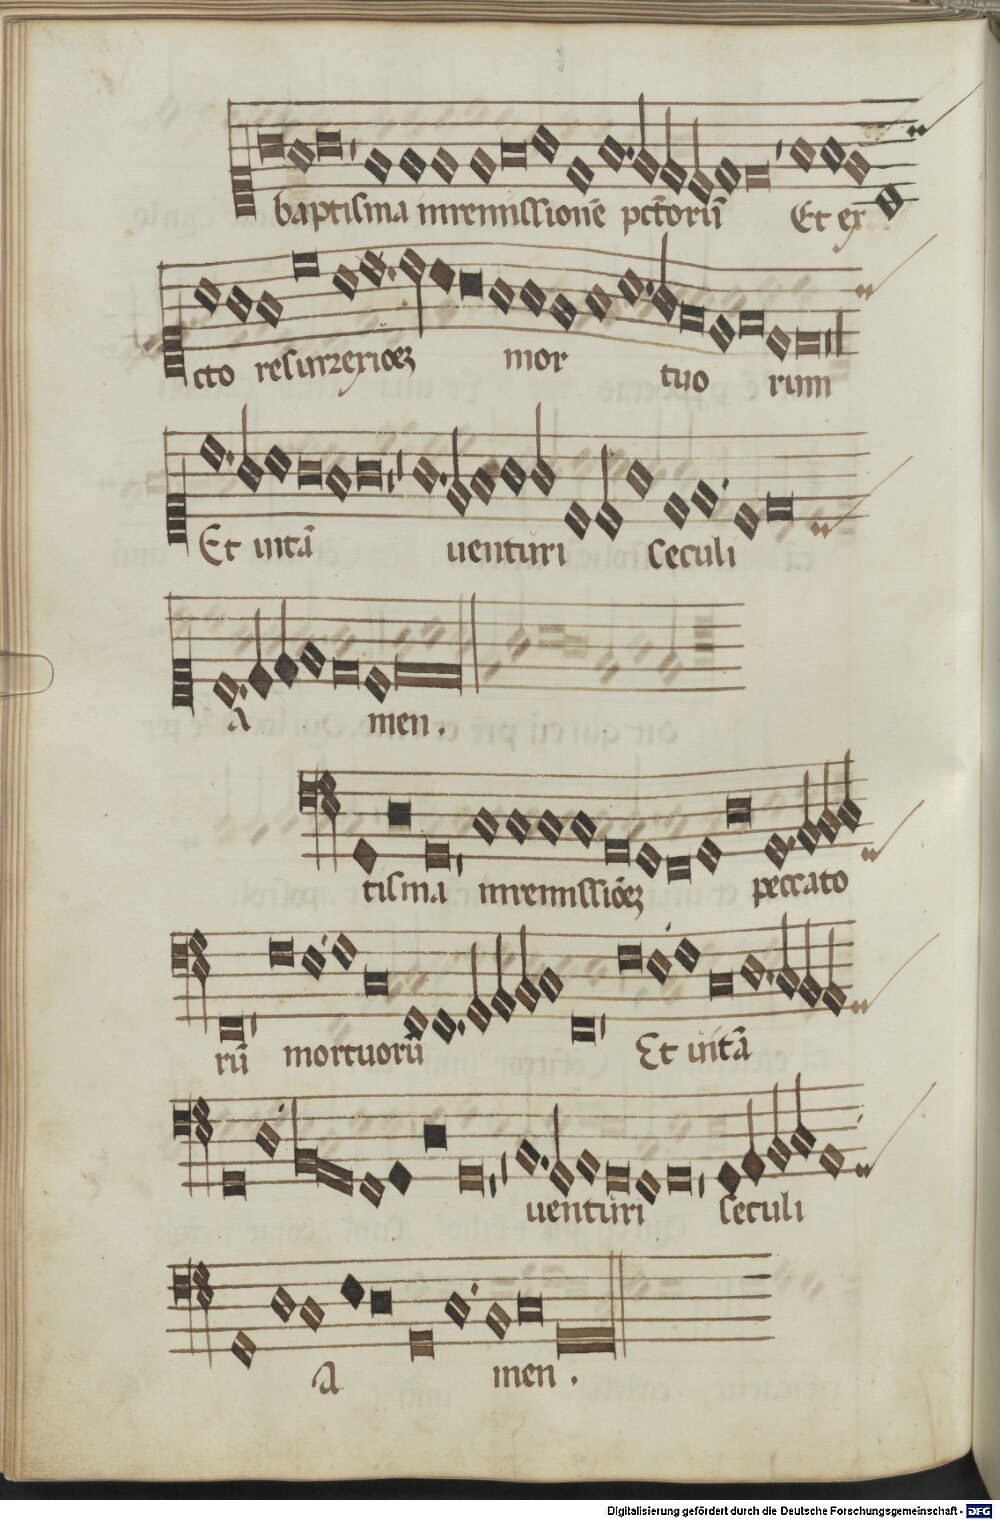 baptisma inremissionē pctōrū Et ex
cto resurrexioēz mor tuo rum
Et uitā uenturi seculi
A men.
tisma inremissiōez peccato
rū mortuorū Et uitā
uenturi seculi
A men.
Digitalisierung gefördert durch die Deutsche Forschungsgemeinschaft - DFG